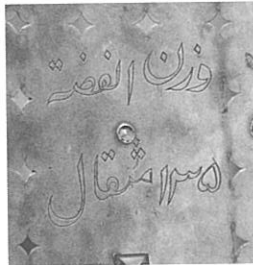 وزن الفضة
١٣٥ مثقال